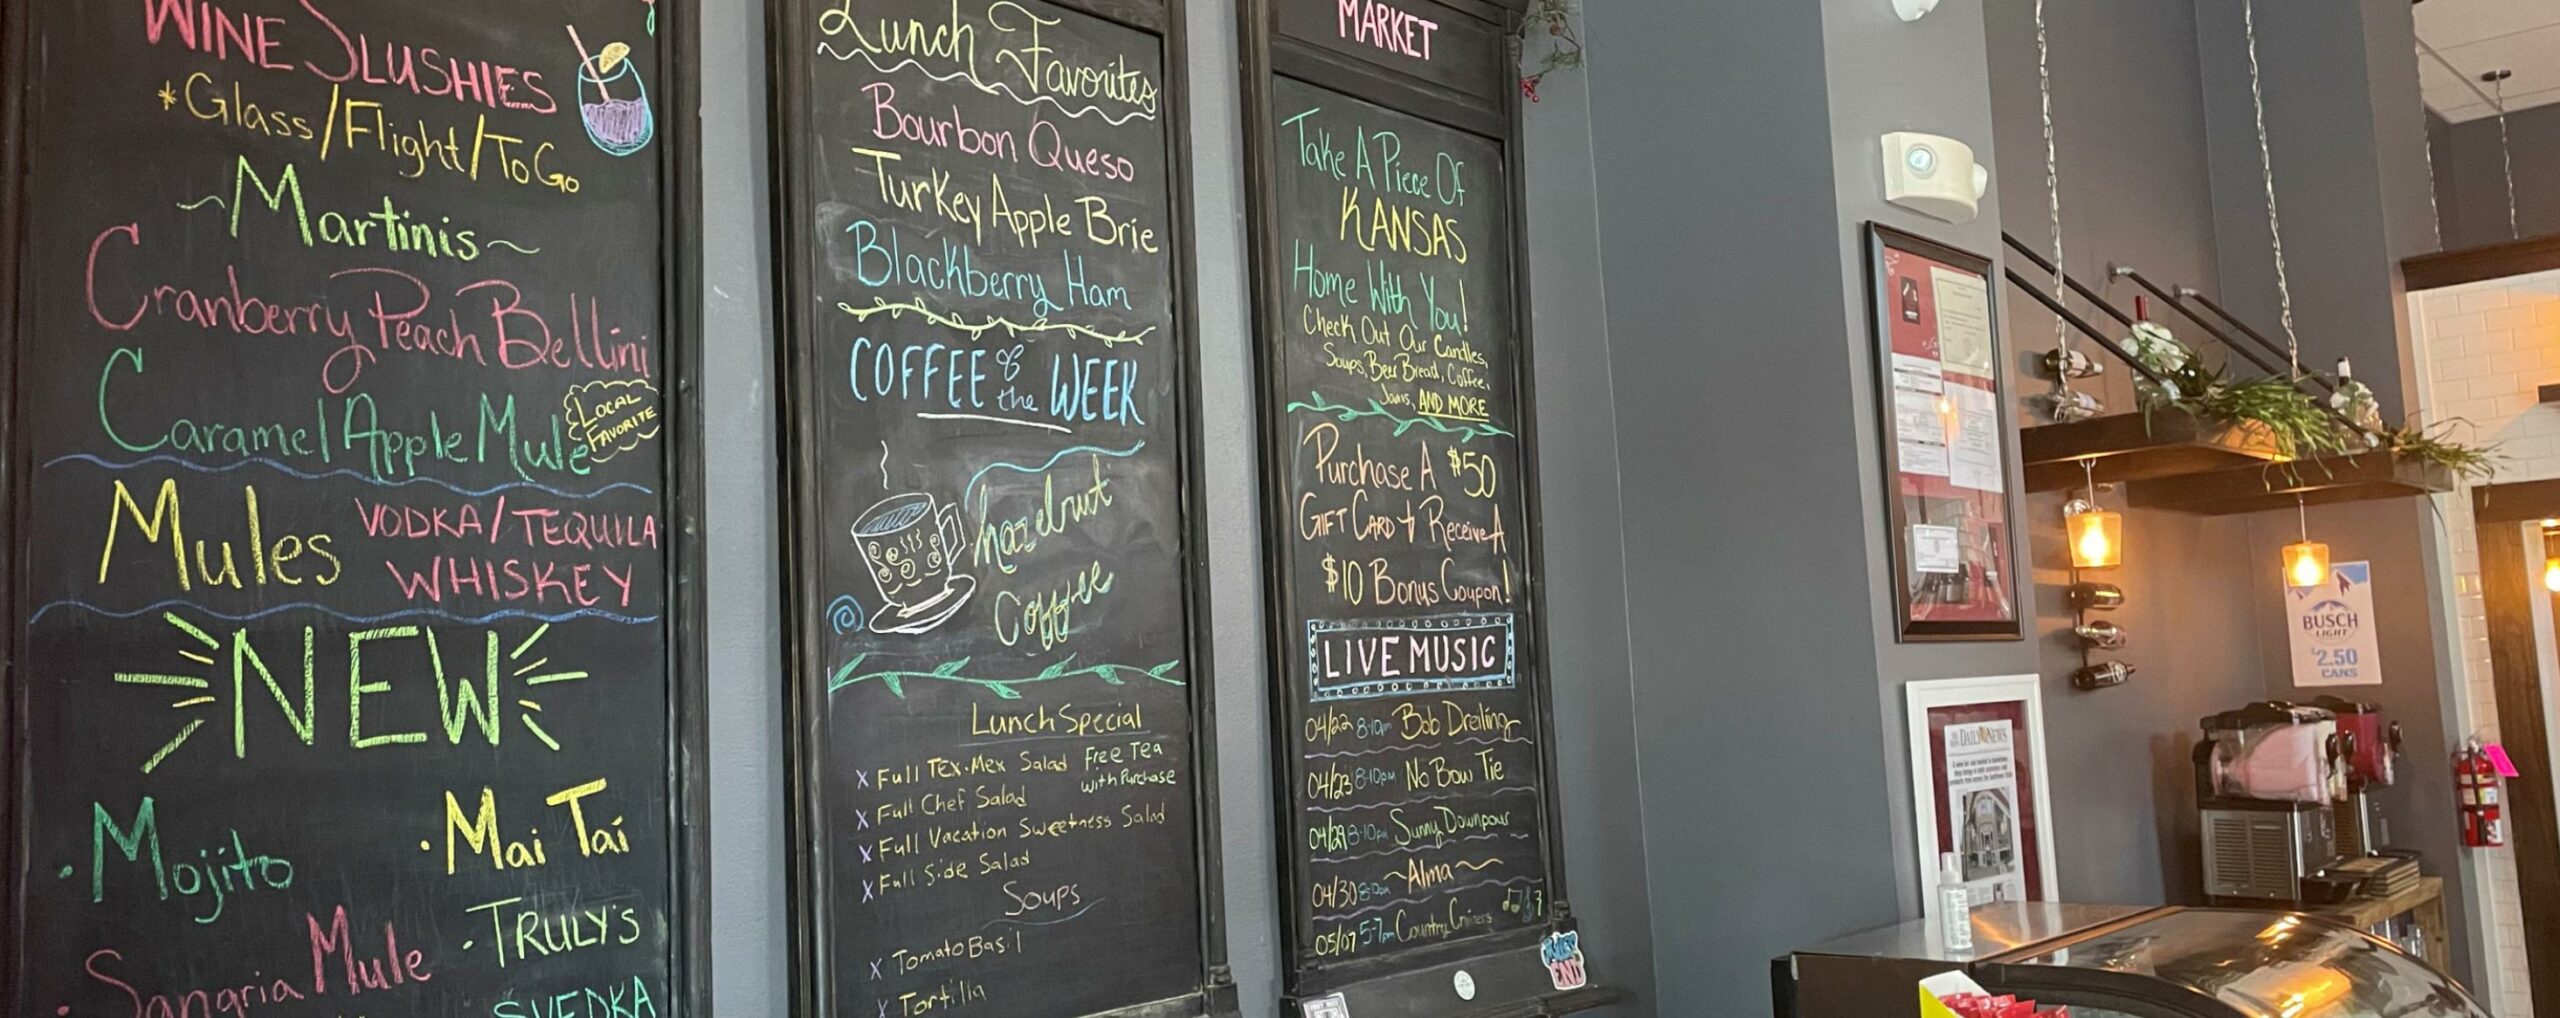 WINE SLUSHIES
*Glass/Flight/To Go
~Martinis~
Cranberry Peach Bellini
Caramel Apple Mule
LOCAL FAVORITE
Mules
VODKA/TEQUILA
WHISKEY
NEW
·Mojito
·Mai Tai
·Sangria Mule
·TRULY'S
SVEDKA
Lunch Favorites
Bourbon Queso
Turkey Apple Brie
Blackberry Ham
COFFEE of the WEEK
hazelnut
Coffee
Lunch Special
x Full Tex-Mex Salad
Free Tea
with Purchase
x Full Chef Salad
x Full Vacation Sweetness Salad
x Full Side Salad
Soups
x Tomato Basil
x Tortilla
MARKET
Take A Piece Of
KANSAS
Home With You!
Check Out Our Candles,
Soups, Beer Bread, Coffee,
Jams, AND MORE
Purchase A $50
GIFT CARD & Receive A
$10 Bonus Coupon!
LIVE MUSIC
04/22 8-10pm Bob Dreiling
04/23 8-10pm No Bow Tie
04/29 8-10pm Sunny Downpour
04/30 8-10pm ~Alma~
05/07 5-7pm Country Cruisers
END
DAILY NEWS
BUSCH
LIGHT
$2.50
CANS